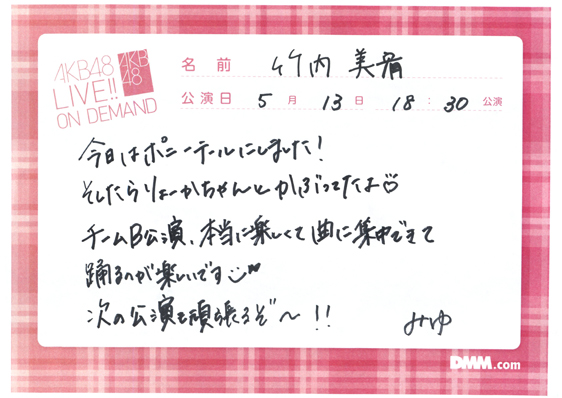 AKB48
LIVE!!
ON DEMAND
AKB
48
名前 竹内 美宥
公演日 5月 13日 18:30 公演
今日はポニーテールにしました!
そしたらりょーかちゃんとかぶってたよ♡
チームB公演、本当に楽しくて曲に集中できて
踊るのが楽しいです
次の公演も頑張るぞ〜!!
みゆ
DMM.com